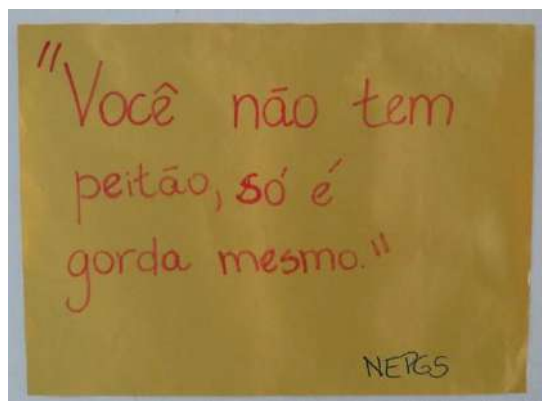 "Você não tem
peitão, só é
gorda mesmo."
NEPGS